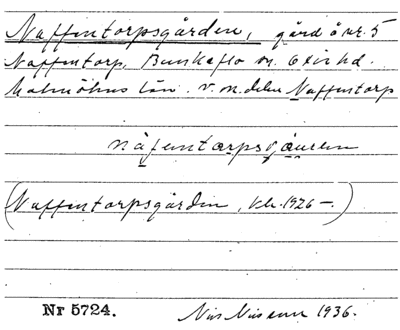 Naffentorpsgården, gård å nr. 5
Naffentorp, Bunkeflo sn. Oxie hd.
Malmöhus län. v. m. delen Naffentorp
(Naffentorpsgården, kk. 1926 –)
Nr 5724. Nils Nilsson 1936.